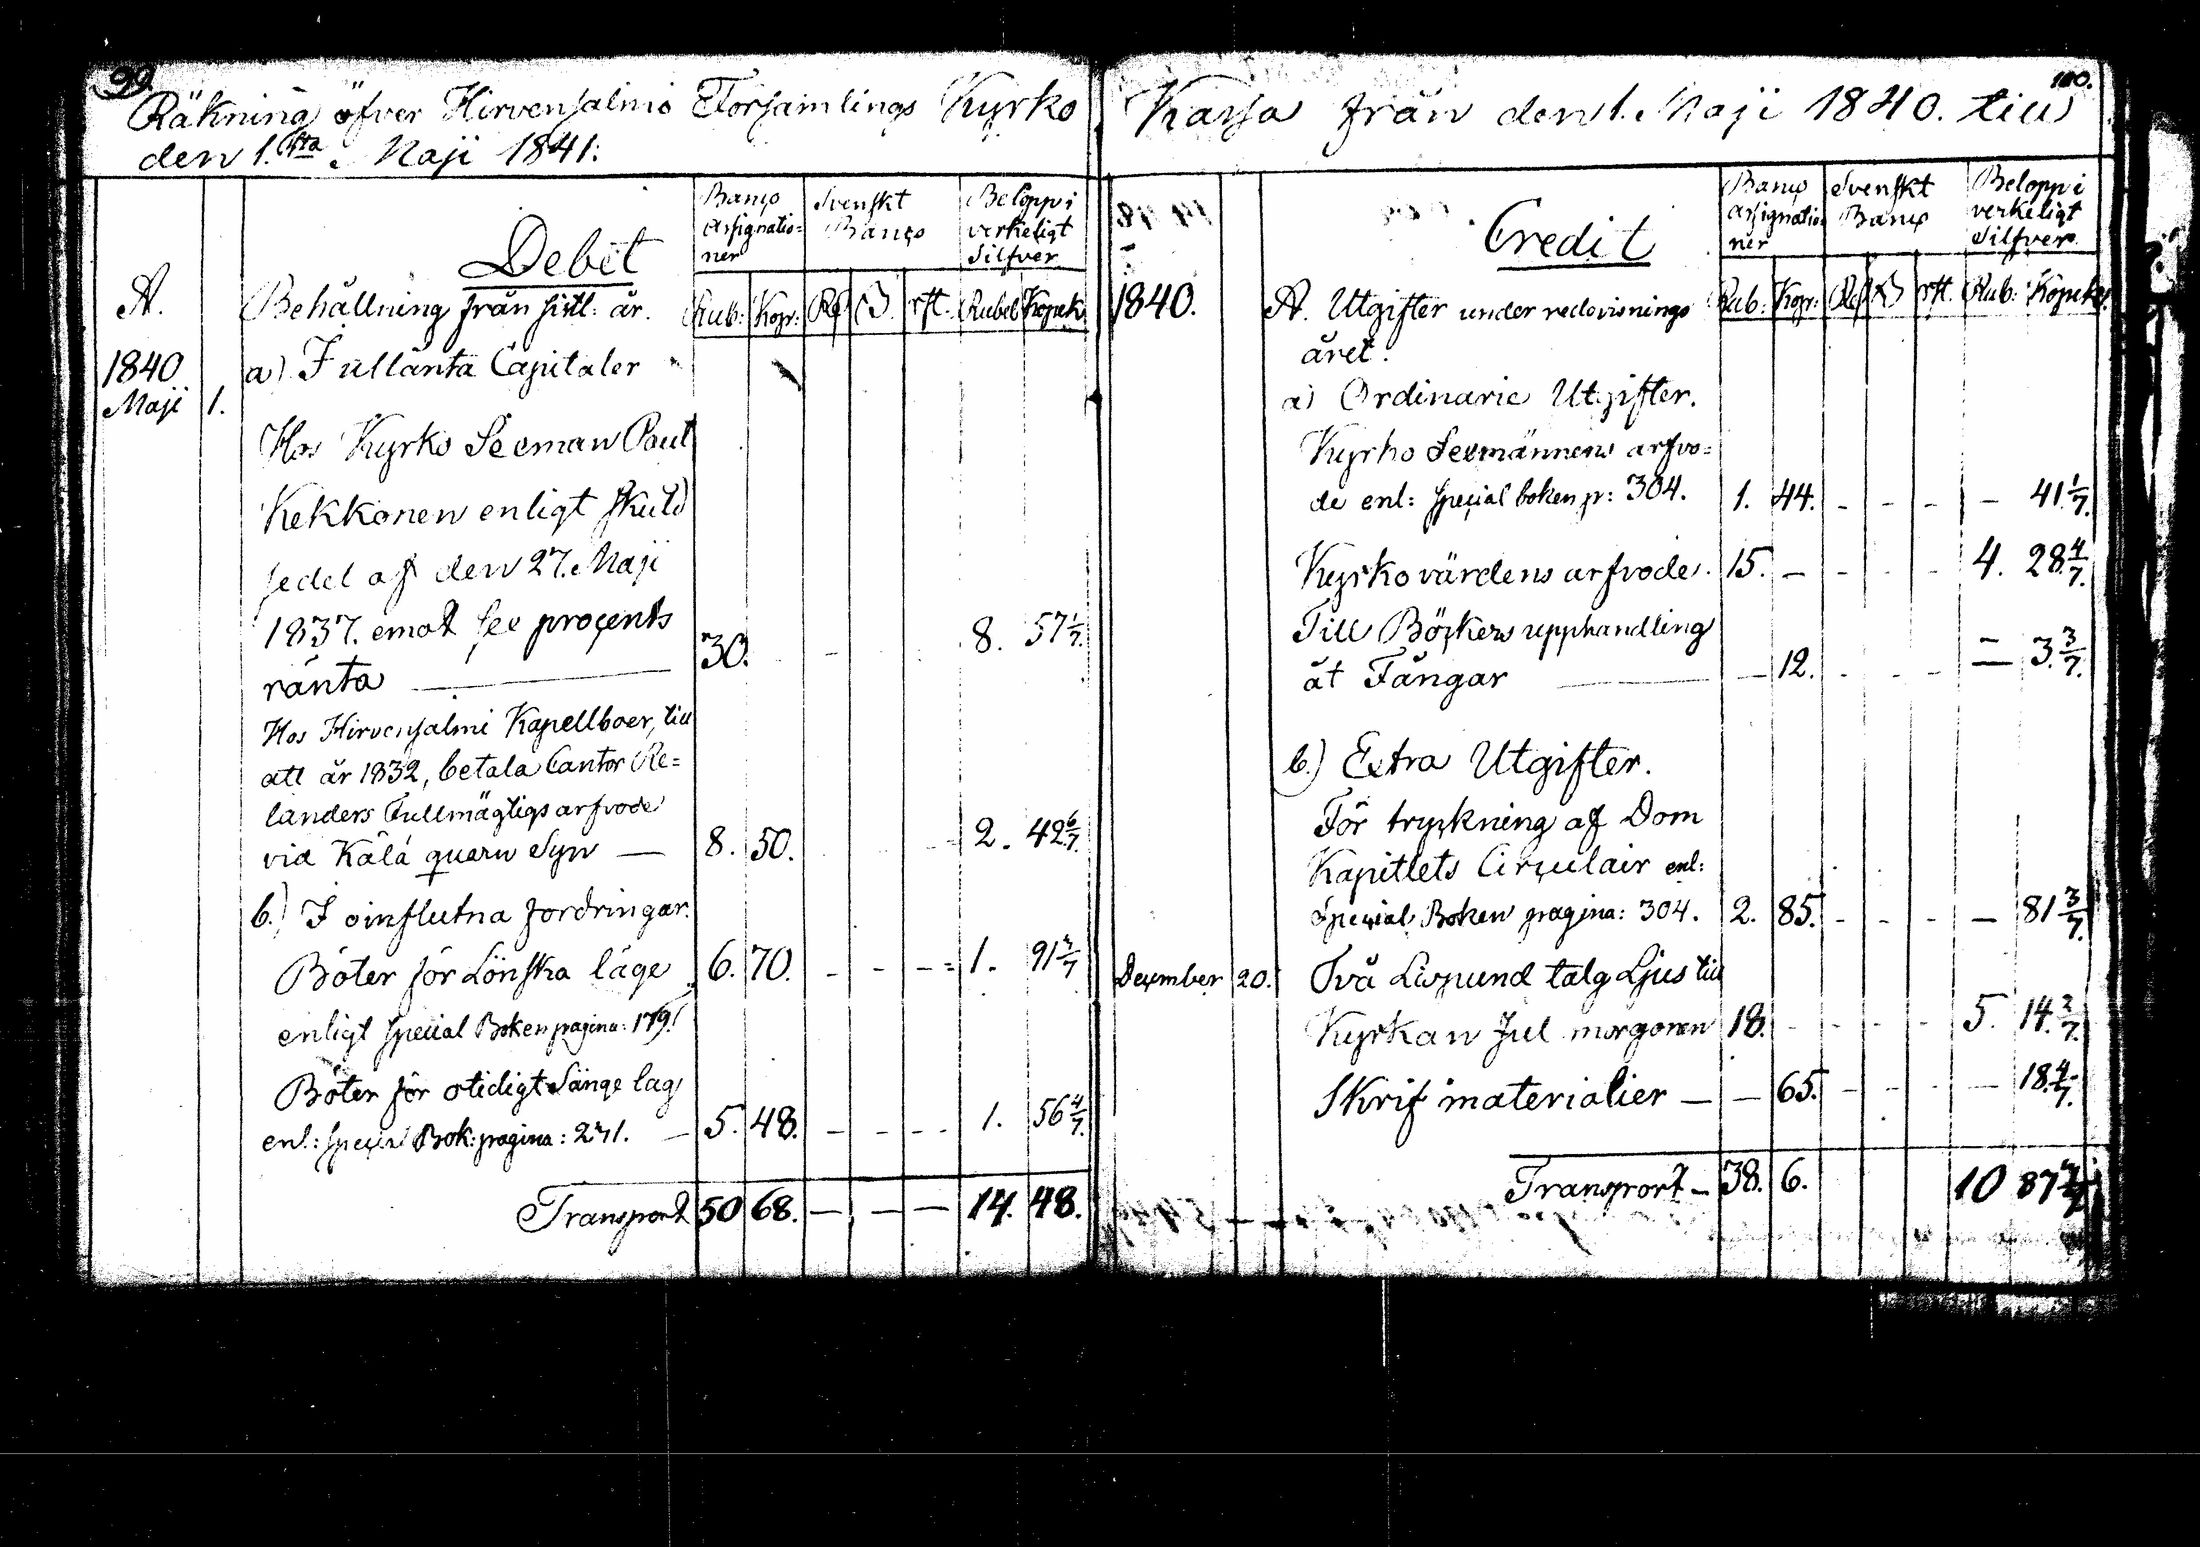 99.
Räkning öfver Hirvensalmis Församlings Kyrko
den 1.sta Maji 1841.
Debet
Banco Assignationer
Svenskt Banco
Belopp i verkeligt Silfver
A. Behållning från sistl: år.
Rub: Kop: Rd ß rst. Rubel Kopek
1840
Maji 1.
a) I utlånta Capitaler
Hos Kyrko Sexman Paul
Kekkonen enligt skuld
sedel af den 27. Maji
1837. emot sex procents
ränta — 30. - 8. 57 1/7.
Hos Hirvensalmi Kapellboer, till
att år 1832, betala Cantor Re=
landers Fullmägtigs arfvode
vid Kälä quarn Syn — 8. 50. - 2. 42 6/7.
b.) I oinflutna fordringar.
Böter för Lönska läge 6. 70. - - - 1. 91 3/7
enligt special Boken pagina: 179.
Böter för otidigt Sänge lag
enl: special Bok: pagina: 271. — 5. 48. - - - 1. 56 4/7.
Transport 50 68. — — — 14. 48.
100.
Kassa från den 1. Maji 1840. till
Credit
Banco Assignationer
Svenskt Banco
Belopp i verkeligt Silfver
1840. A. Utgifter under redovisnings
Rub: Kop: Rd ß rst. Rub: Kopek
året.
a) Ordinarie Utgifter.
Kyrko Sexmännens arfvo=
de enl: special boken p: 304. 1. 44. - - - — 41 1/7.
Kyrkovärdens arfvode. 15. — - - - 4. 28 4/7.
Till Böckers upphandling
åt Fångar — — 12. - - - — 3 3/7.
b.) Extra Utgifter.
För tryckning af Dom
Kapitlets Circulair enl:
Special Boken pagina: 304. 2. 85. - - - — 81 3/7.
December 20. Två Lispund talg Ljus till
Kyrkan Jul morgonen 18. - - - - 5. 14 2/7.
Skrif materialier — — 65. - - - — 18 4/7.
Transport — 38. 6. 10 87 3/7